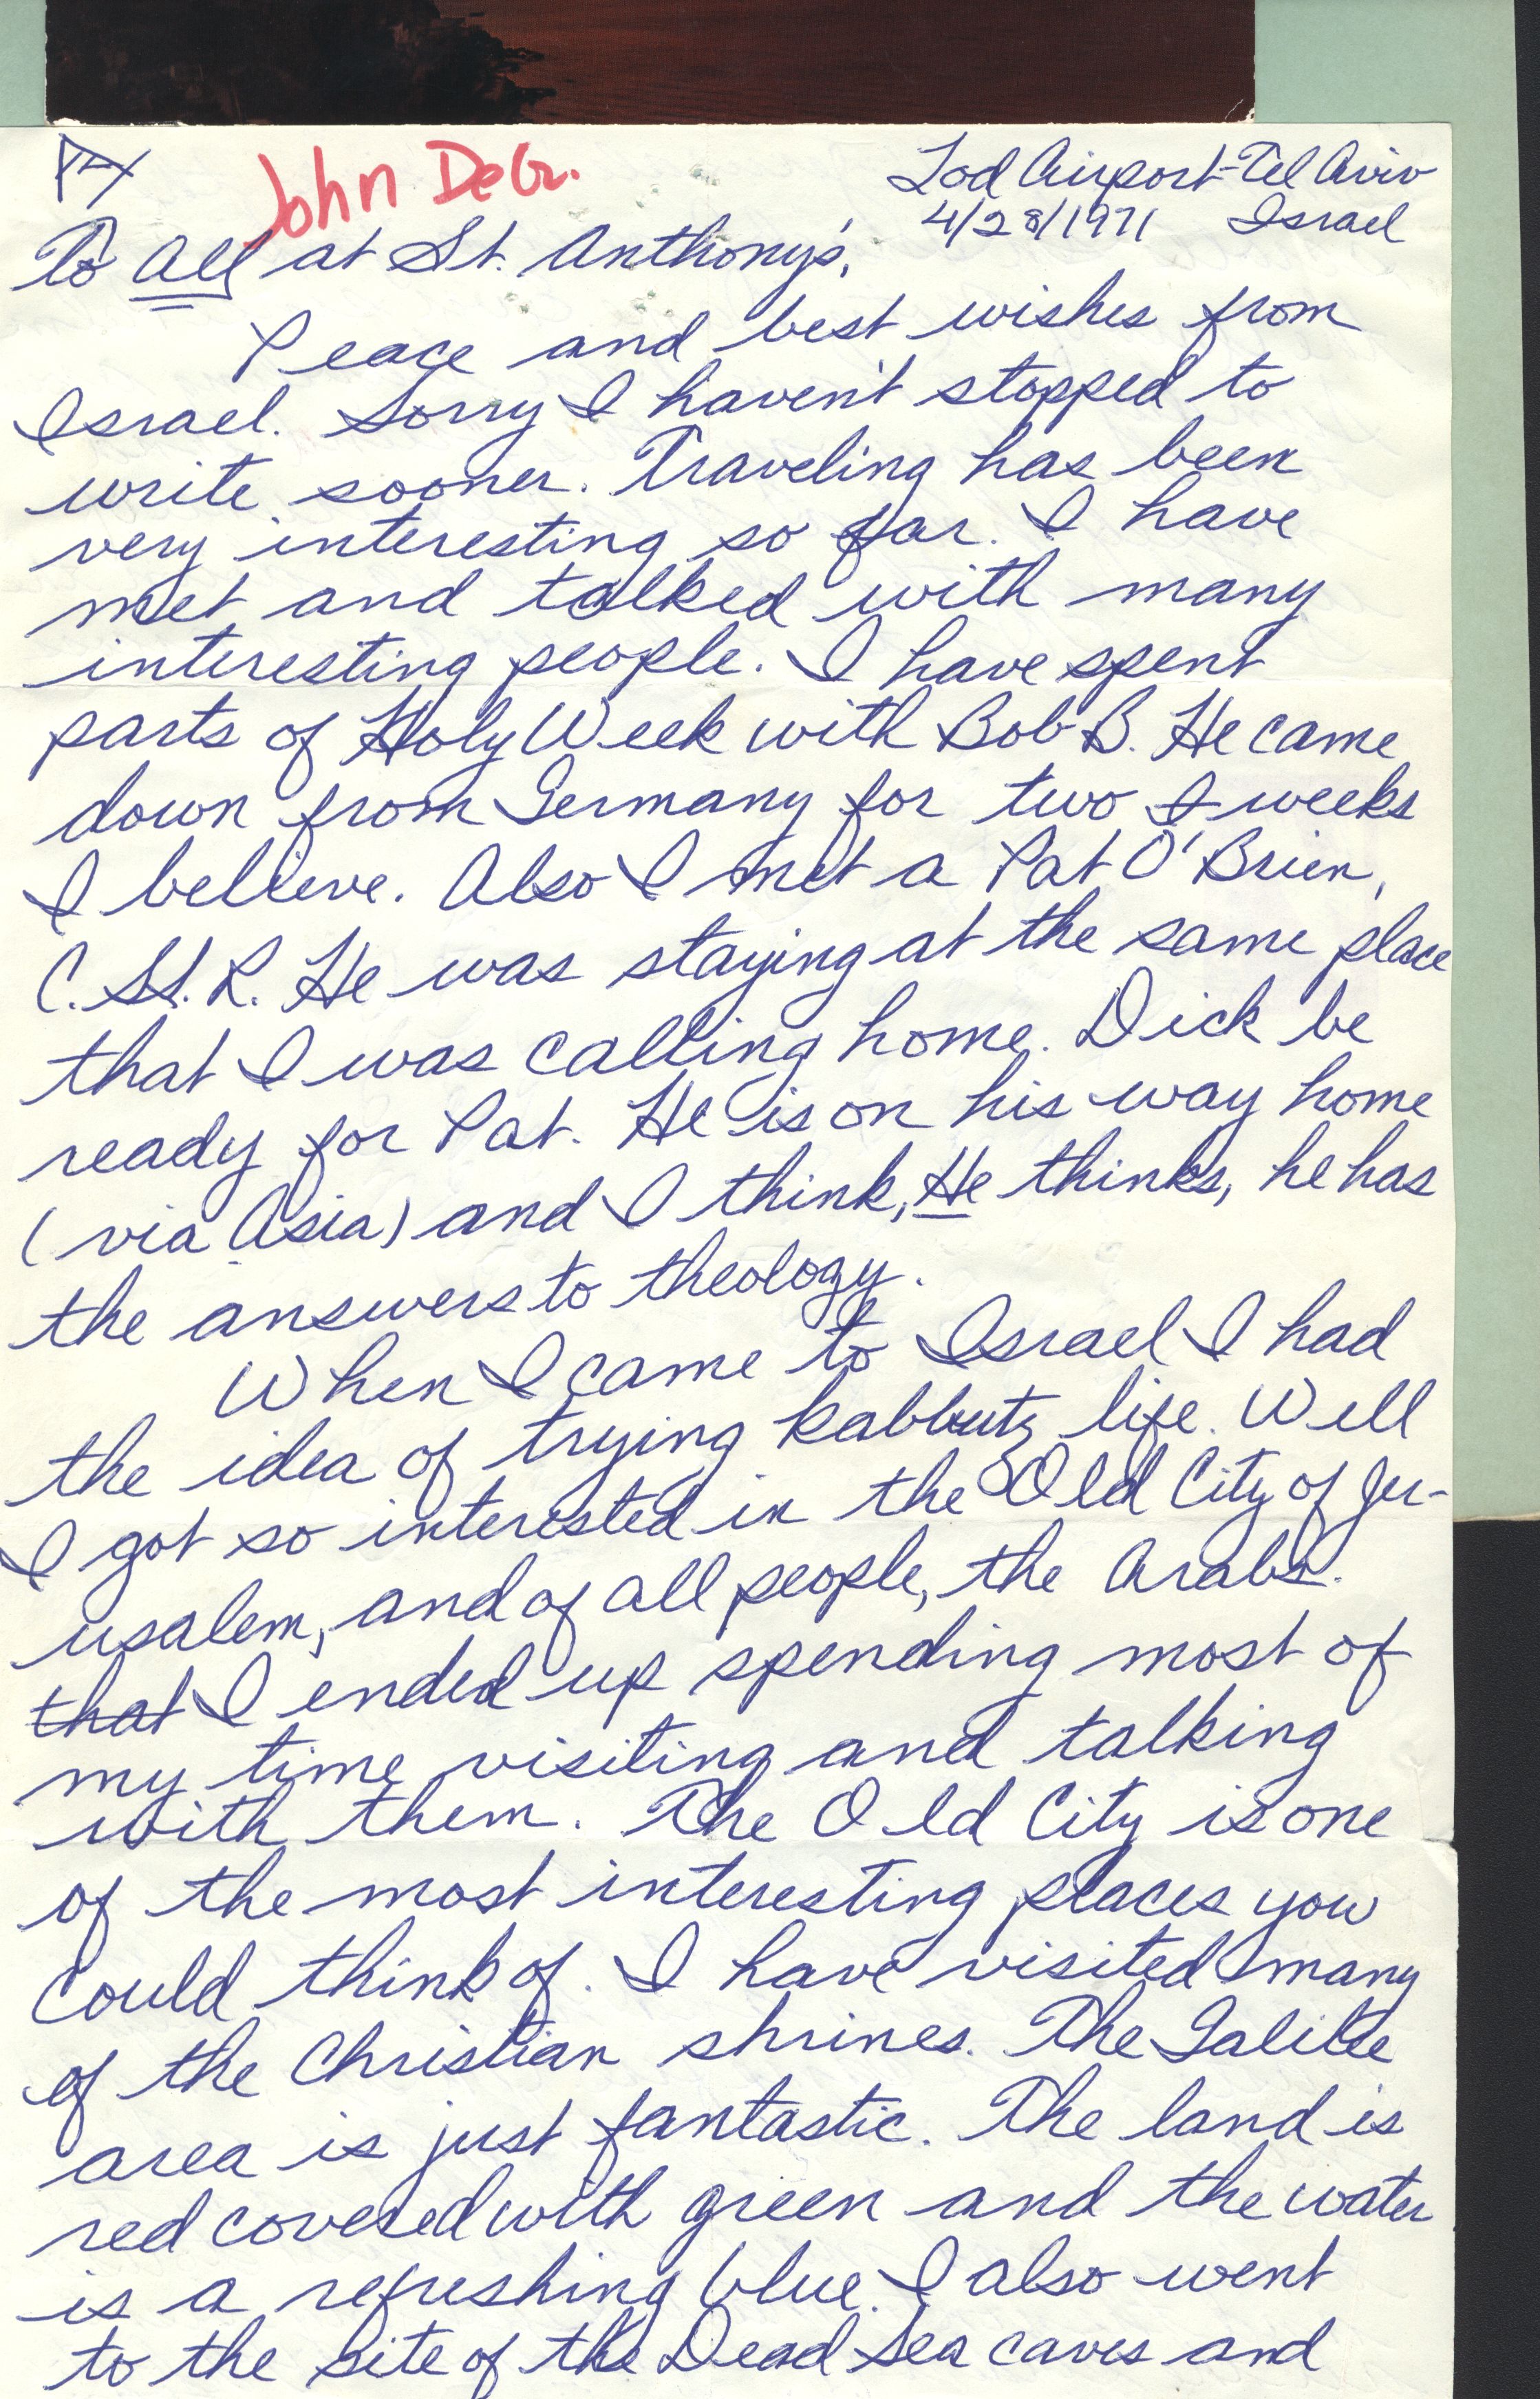 John DeGr.
Lod Airport-Tel Aviv
4/28/1971 Israel
To All at St. Anthony's,
Peace and best wishes from
Israel. Sorry I haven't stopped to
write sooner. Traveling has been
very interesting so far. I have
met and talked with many
interesting people. I have spent
parts of Holy Week with Bob B. He came
down from Germany for two weeks
I believe. Also I met a Pat O'Brien,
C.SS.R. He was staying at the same place
that I was calling home. Dick be
ready for Pat. He is on his way home
(via Asia) and I think, He thinks, he has
the answers to theology.
When I came to Israel I had
the idea of trying kabbutz life. Well
I got so interested in the Old City of Jer-
usalem, and of all people, the Arabs.
that I ended up spending most of
my time visiting and talking
with them. The Old City is one
of the most interesting places you
could think of. I have visited many
of the Christian shrines. The Galilee
area is just fantastic. The land is
red covered with green and the water
is a refreshing blue. I also went
to the site of the Dead Sea caves and